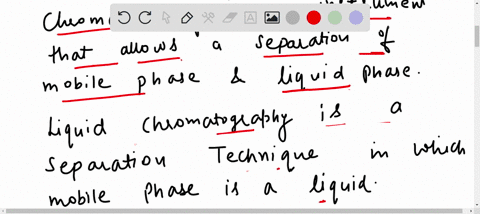 that allows a separation of
mobile phase & liquid phase.
Liquid Chromatography is a
Separation Technique in which
mobile phase is a liquid.